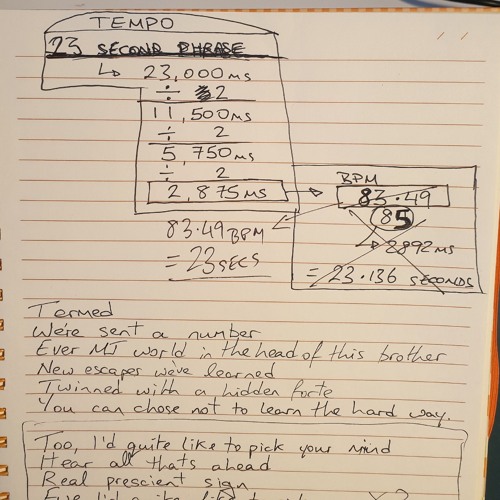 TEMPO
23 SECOND PHRASE
↳ 23,000ms
÷ 2
11,500ms
÷ 2
5,750ms
÷ 2
2,875ms
BPM
83.49
85
↳ 2892ms
= 23.136 SECONDS
83.49 BPM
= 23 SECS
Termed
We're sent a number
Ever MJ world in the head of this brother
New escapes we've learned
Twinned with a hidden forte
You can chose not to learn the hard way.
Too, I'd quite like to pick your mind
Hear all thats ahead
Real prescient sign